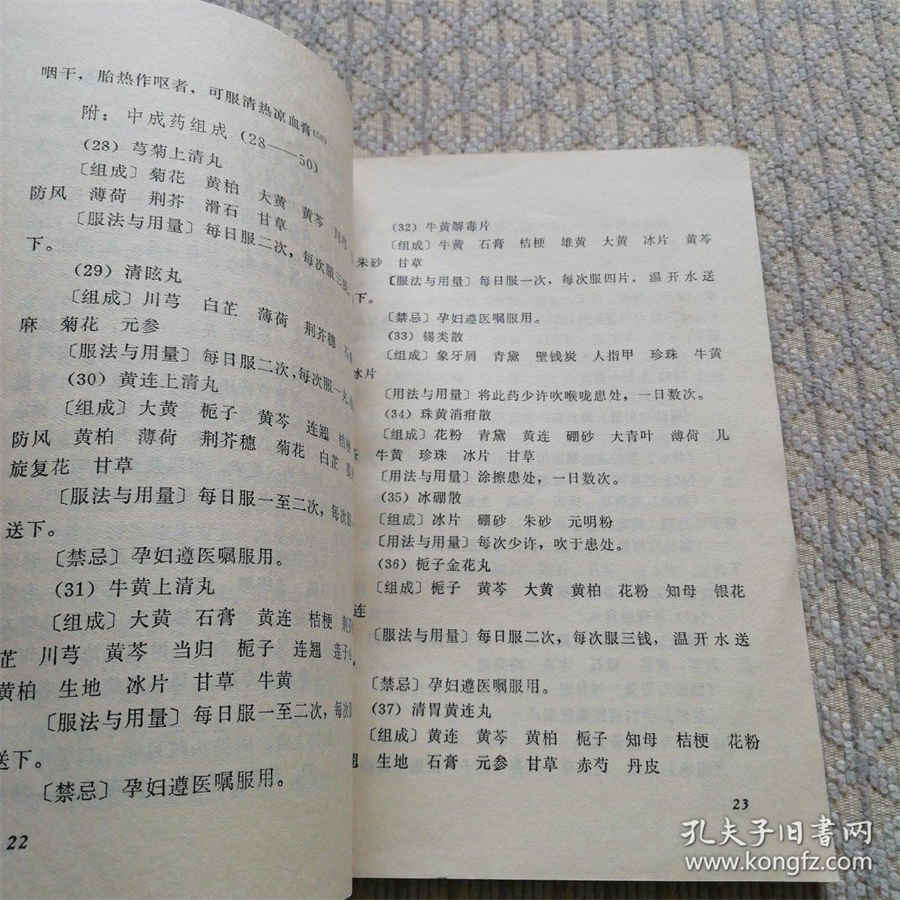 咽干，胎热作呕者，可服清热凉血膏
附：中成药组成（28——50）
（28）芎菊上清丸
〔组成〕菊花 黄柏 大黄 黄芩
防风 薄荷 荆芥 滑石 甘草
〔服法与用量〕每日服二次，每次服三
下。
（29）清眩丸
〔组成〕川芎 白芷 薄荷 荆芥穗
麻 菊花 元参
〔服法与用量〕每日服二次，每次服一丸
（30）黄连上清丸
〔组成〕大黄 栀子 黄芩 连翘
防风 黄柏 薄荷 荆芥穗 菊花 白芷
旋复花 甘草
〔服法与用量〕每日服一至二次，每次
送下。
〔禁忌〕孕妇遵医嘱服用。
（31）牛黄上清丸
〔组成〕大黄 石膏 黄连 桔梗
芷 川芎 黄芩 当归 栀子 连翘 莲子
黄柏 生地 冰片 甘草 牛黄
〔服法与用量〕每日服一至二次，每次
送下。
〔禁忌〕孕妇遵医嘱服用。
22
（32）牛黄解毒片
〔组成〕牛黄 石膏 桔梗 雄黄 大黄 冰片 黄芩
朱砂 甘草
〔服法与用量〕每日服一次，每次服四片，温开水送
下。
〔禁忌〕孕妇遵医嘱服用。
（33）锡类散
〔组成〕象牙屑 青黛 壁钱炭 人指甲 珍珠 牛黄
冰片
〔用法与用量〕将此药少许吹喉咙患处，一日数次。
（34）珠黄消疳散
〔组成〕花粉 青黛 黄连 硼砂 大青叶 薄荷 儿
牛黄 珍珠 冰片 甘草
〔用法与用量〕涂擦患处，一日数次。
（35）冰硼散
〔组成〕冰片 硼砂 朱砂 元明粉
〔用法与用量〕每次少许，吹于患处。
（36）栀子金花丸
〔组成〕栀子 黄芩 大黄 黄柏 花粉 知母 银花
连
〔服法与用量〕每日服二次，每次服三钱，温开水送
〔禁忌〕孕妇遵医嘱服用。
（37）清胃黄连丸
〔组成〕黄连 黄芩 黄柏 栀子 知母 桔梗 花粉
翘 生地 石膏 元参 甘草 赤芍 丹皮
23
孔夫子旧书网
www.kongfz.com